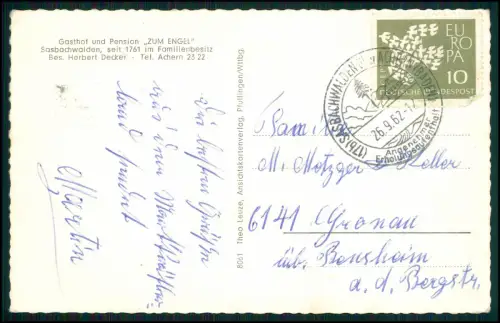 Gasthof und Pension „ZUM ENGEL"
Sasbachwalden, seit 1761 im Familienbesitz
Bes. Herbert Decker - Tel. Achern 23 22
Die besten Grüße
aus dem
sendet
Martin
8061 Theo Leuze, Ansichtskartenverlag, Pfullingen/Wttbg.
EUROPA
10
DEUTSCHE BUNDESPOST
(17b) SASBACHWALDEN
26.9.62-17
Angenehmer
Erholungsaufenthalt
Familie
M. Metzger - Keller
6141 Gronau
üb. Bensheim
a. d. Bergstr.